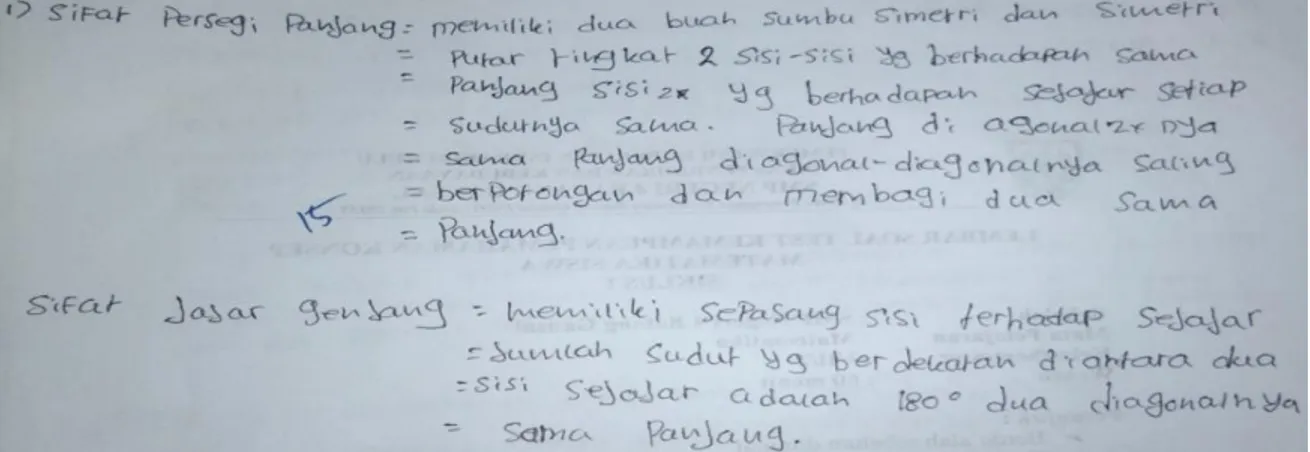 1) Sifat Persegi Panjang = memiliki dua buah sumbu simetri dan simetri
= Putar tingkat 2 sisi-sisi yg berhadapan sama
= Panjang sisi2x yg berhadapan sejajar setiap
= sudutnya sama. Panjang di agonal2x nya
= sama Panjang diagonal-diagonalnya saling
= berpotongan dan membagi dua sama
= Panjang.
15
Sifat Jajar genjang = memiliki sepasang sisi terhadap sejajar
= Jumlah sudut yg berdekatan diantara dua
= sisi sejajar adalah 180° dua diagonalnya
= sama Panjang.